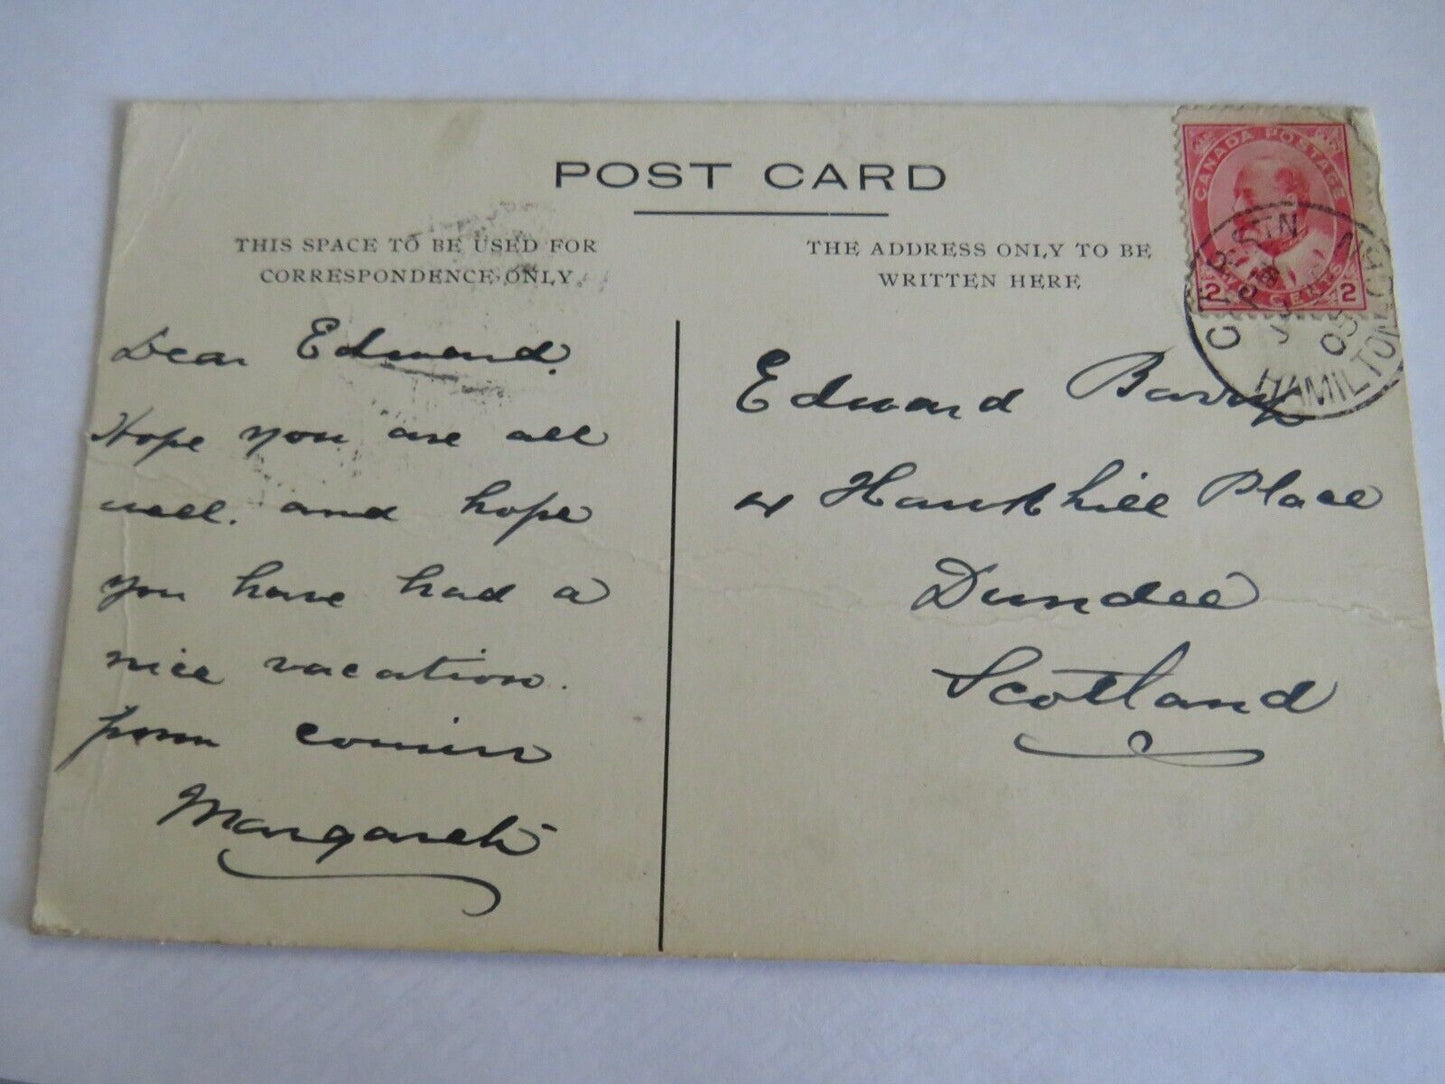 POST CARD
THIS SPACE TO BE USED FOR
CORRESPONDENCE ONLY.
THE ADDRESS ONLY TO BE
WRITTEN HERE
CANADA POSTAGE
2 CENTS 2
HAMILTON, CAN
05
Dear Edward.
Hope you are all
well. and hope
you have had a
nice vacation.
from cousin
Margaret
Edward Barry
Hawkhill Place
Dundee
Scotland